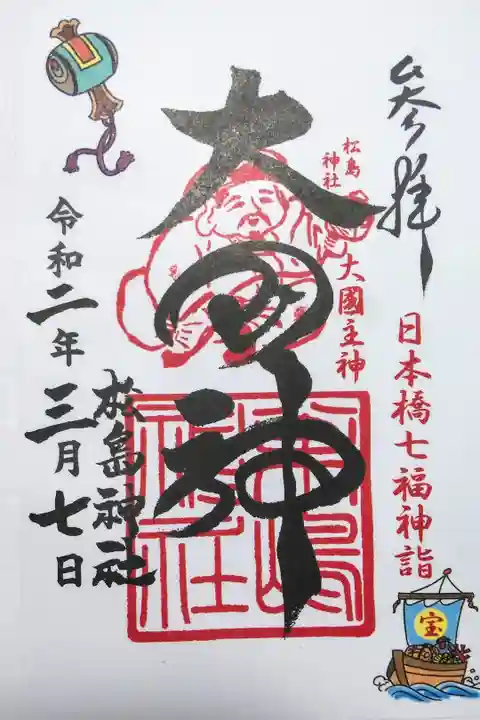 参拝
日本橋七福神詣
松島
神社
大國主神
大国神
松嶋
神社
松島神社
令和二年三月七日
宝